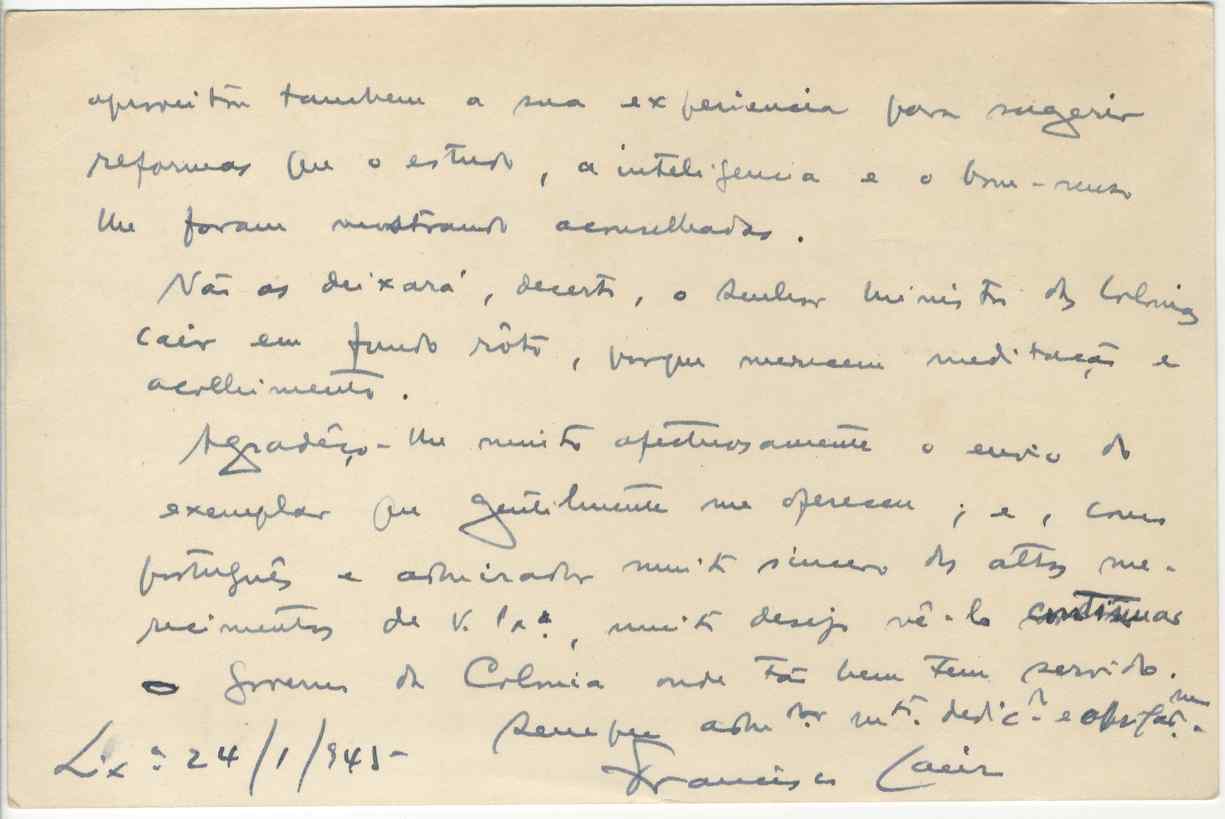 aproveitou tambem a sua experiencia para sugerir
reformas que o estudo, a inteligencia e o bom-senso
lhe foram mostrando aconselhadas.
Não as deixará, decerto, o Senhor Ministro das Colonias
cair em fundo rôto, porque merecem meditação e
acolhimento.
Agradêço-lhe muito afectuosamente o envio do
exemplar que gentilmente me ofereceu; e, como
português e admirador muito sincero dos altos me-
recimentos de V. Exª., muito desejo vê-lo continuar
o Governo da Colonia onde tão bem tem servido.
Sempre adm.dor mt.º dedic.º e
Lx.ª 24/1/945-
Francisco